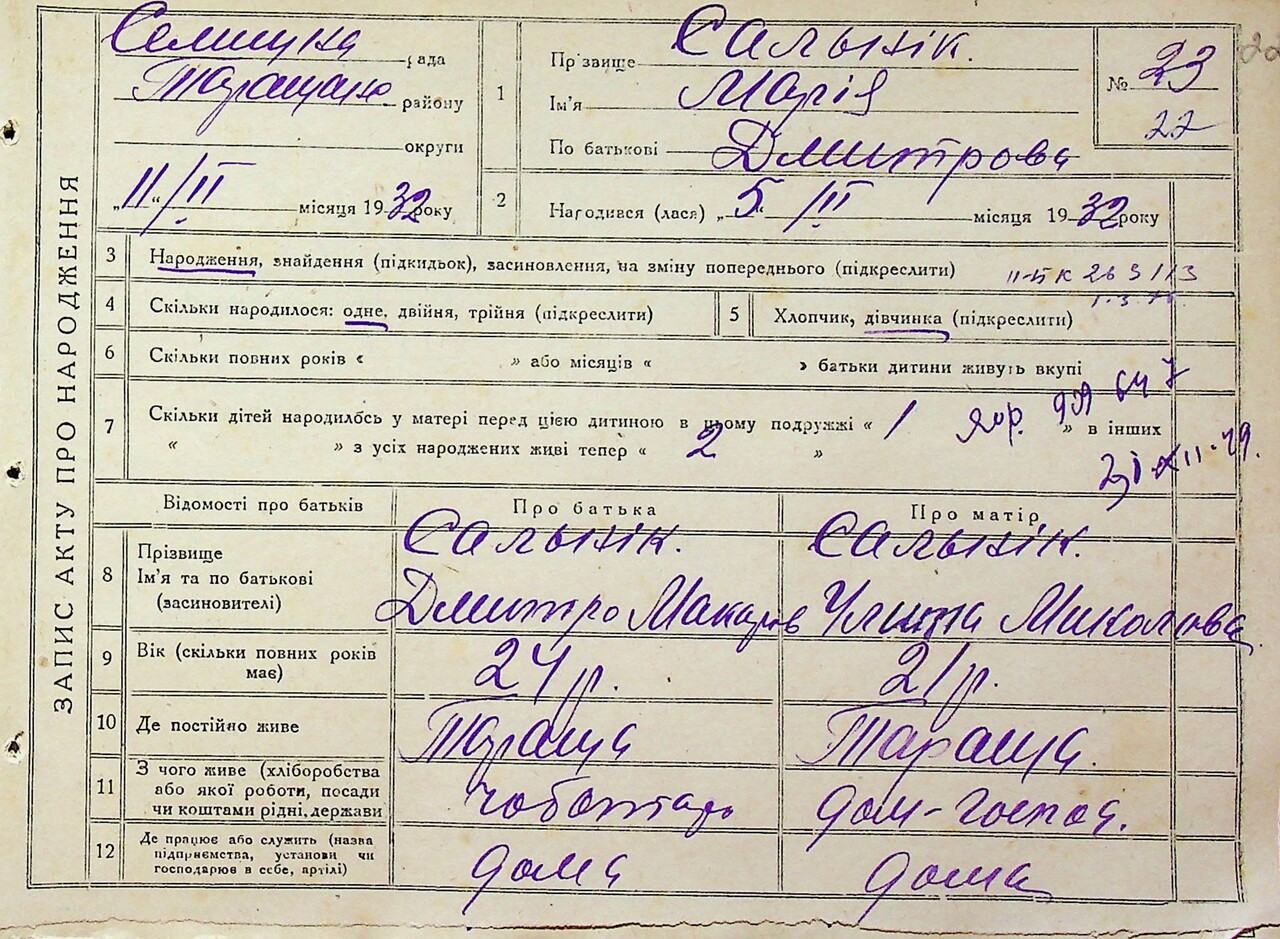 ЗАПИС АКТУ ПРО НАРОДЖЕННЯ
Селищна рада
Таращан району
округи
„11“/II місяця 1932 року
1 Прізвище Сальнік.
Ім'я Марія
По батькові Дмитрова
№ 23
22
2 Народився (лася) „5“ /II місяця 1932 року
3 Народження, знайдення (підкидьок), засиновлення, на зміну попереднього (підкреслити)
4 Скільки народилося: одне, двійня, трійня (підкреслити)
5 Хлопчик, дівчинка (підкреслити)
6 Скільки повних років « » або місяців « » батьки дитини живуть вкупі
7 Скільки дітей народилось у матері перед цією дитиною в цьому подружжі « 1 » в інших
« » з усіх народжених живі тепер « 2 »
Відомості про батьків Про батька Про матір
8 Прізвище Сальнік. Сальнік.
Ім'я та по батькові Дмитро Макаров Улита Миколова
(засиновителі)
9 Вік (скільки повних років має) 24 р. 21 р.
10 Де постійно живе Тараща Тараща.
11 З чого живе (хліборобства
або якої роботи, посади
чи коштами рідні, держави чоботарь дом-господ.
12 Де працює або служить (назва
підприємства, установи чи
господарює в себе, артілі) дома дома